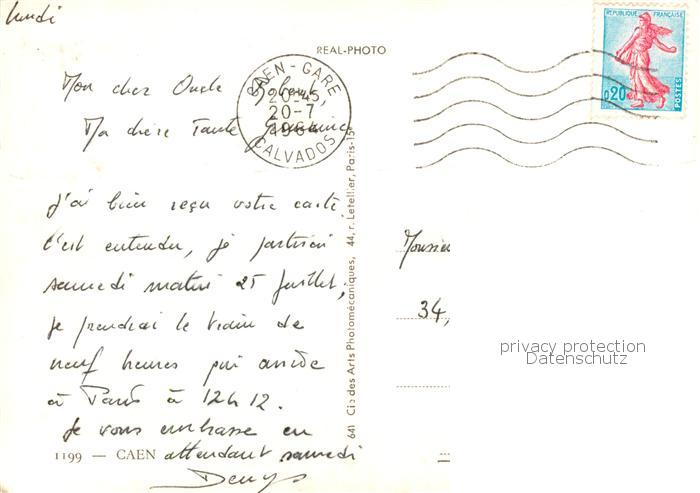 lundi
REAL-PHOTO
RÉPUBLIQUE FRANÇAISE
0,20
POSTES
CAEN - GARE
20-45
20-7
1964
CALVADOS
Mon cher Oncle
Ma chère Tante
J'ai bien reçu votre carte.
C'est entendu, je partirai
samedi matin 25 Juillet,
Je prendrai le train de
neuf heures qui arrive
à Paris à 12h12.
Je vous embrasse en
attendant samedi
Denys
1199 — CAEN
641 Cie des Arts Photomécaniques, 44, r. Letellier, Paris-15e
Monsieur
34,
privacy protection
Datenschutz